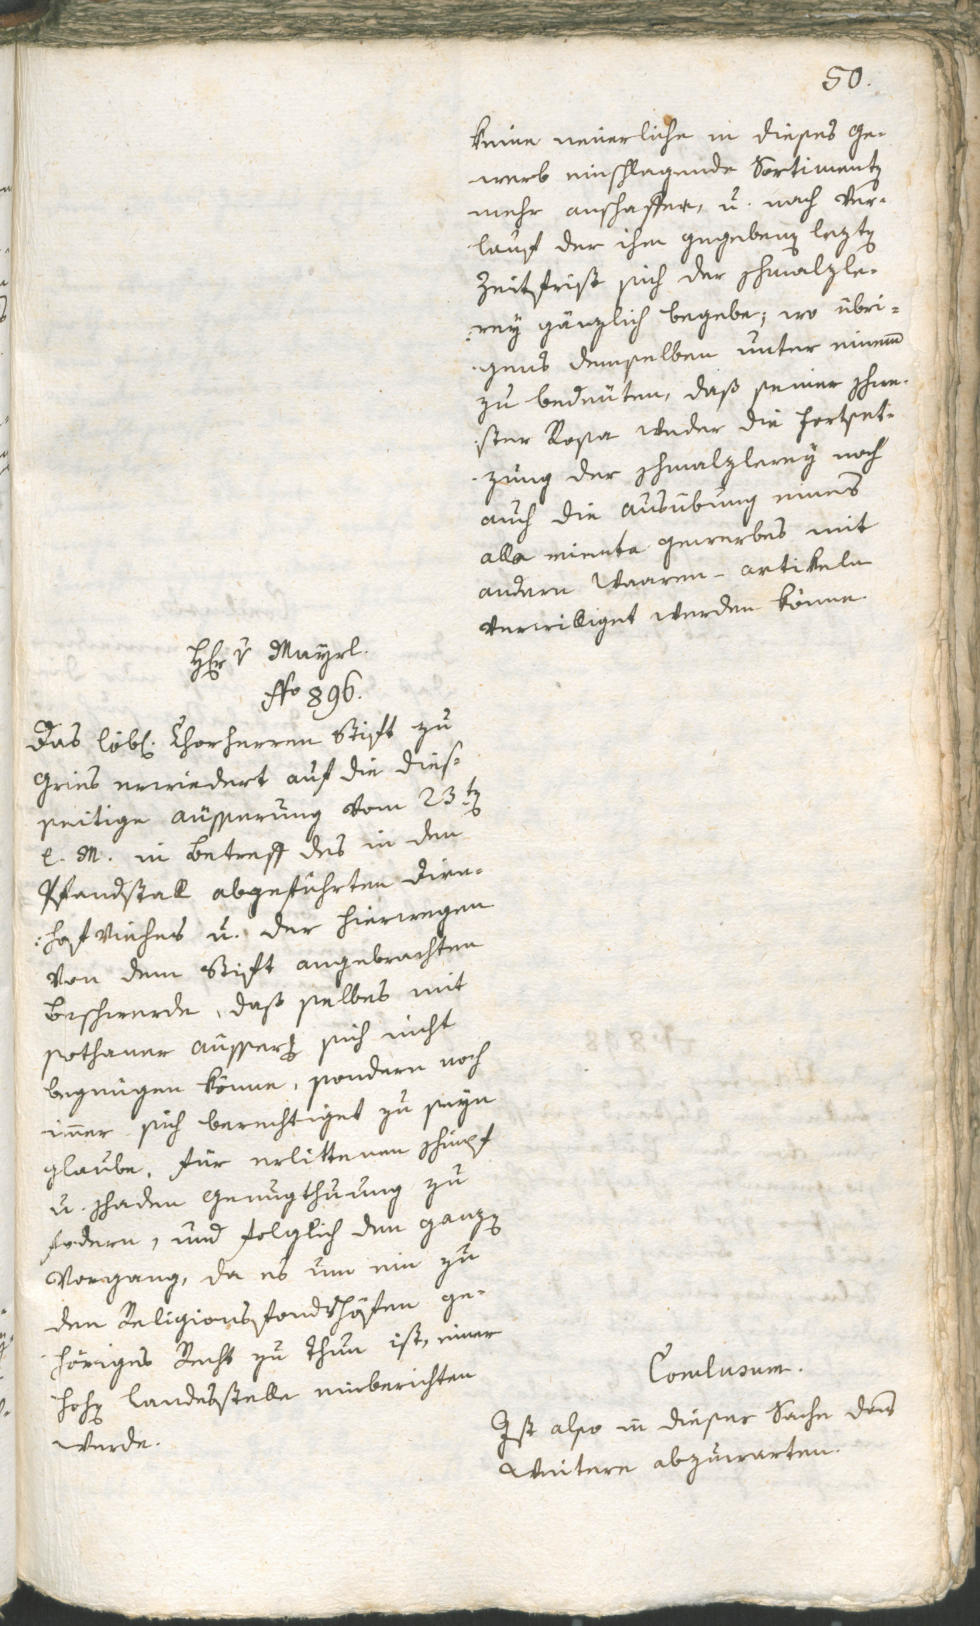 50.
keine neuerliche in dieses Ge-
werb einschlagende Sortimentg
mehr anschaffen, u. nach Ver-
lauf der ihm gegebeng leztg
Zeitfrist sich der Schmalzle-
rey gänzlich begebe; wo übri-
gens demselben unter einem
zu bedeuten, daß seiner Schwe-
ster Rosa weder die Fortset-
zung der Schmalzlerey noch
auch die Ausübung eines
alla minuta Gewerbes mit
andern Waaren-Artikeln
verwilliget werden könne.
Hr v Mayrl.
No 896.
Das löbl. Chorherren Stift zu
Gries erwiedert auf die dies-
seitige Äusserung vom 23tg
l. M. in Betreff des in den
Pfandstall abgeführten
hof Viehes u. der hierwegen
von dem Stift angebrachten
Beschwerde, daß selbes mit
sothaner Äusserg sich nicht
begnügen könne, sondern noch
imer sich berechtiget zu seyn
glaube, für erlittenen Schimpf
u. Schaden Genugthuung zu
fodern, und folglich den ganzg
Vorgang, da es um ein zu
den Religionsfondshöfen ge-
höriges Recht zu thun ist, einer
hohg Landesstelle einberichten
werde.
Conclusum.
Ist also in dieser Sache das
Weitere abzuwarten.